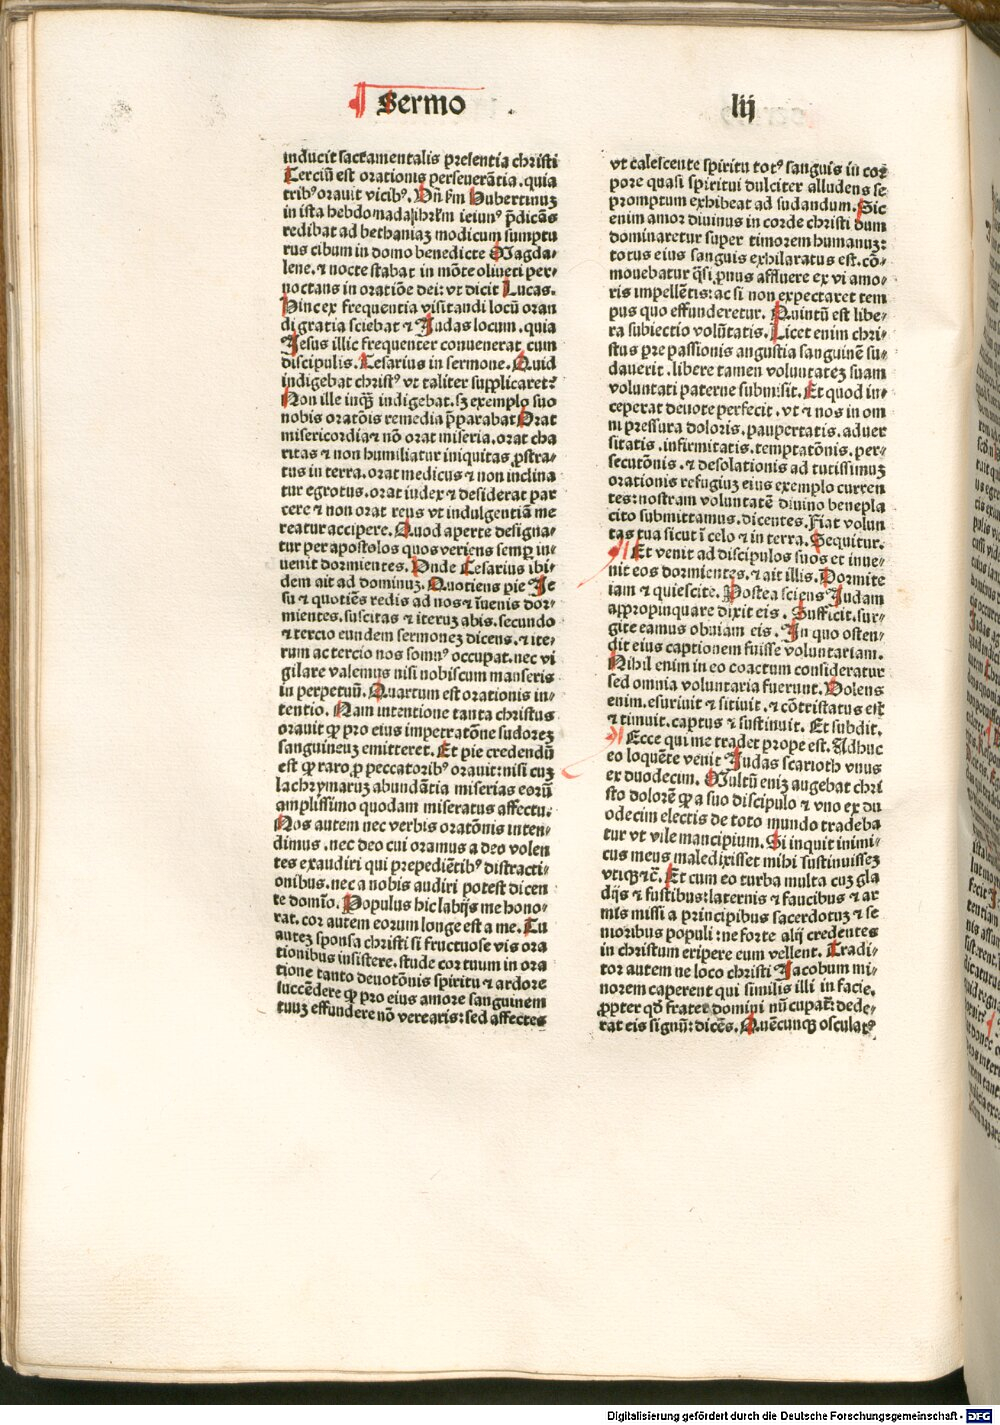 Sermo
lij
inducit sacramentalis presentia christi
Terciũ est orationis perseverãtia. quia
tribꝰ orauit vicibꝰ. Vñ fm Hubertinuz
in ista hebdomada ihrlm ieiunꝰ p̃dicãs
redibat ad bethaniaz modicum sumptu
rus cibum in domo benedicte Magda-
lene. ⁊ nocte stabat in mõte oliueti per-
noctans in oratiõe dei: vt dicit Lucas.
Hinc ex frequentia visitandi locũ oran
di gratia sciebat ⁊ Judas locum. quia
Jesus illic frequenter conuenerat cum
discipulis. Cesarius in sermone. Quid
indigebat christꝰ vt taliter supplicaret?
Non ille inqͫ indigebat. sꝫ exemplo suo
nobis oratõis remedia p̃parabat Orat
misericordia ⁊ nõ orat miseria. orat cha
ritas ⁊ non humiliatur iniquitas. ꝓstra-
tus in terra. orat medicus ⁊ non inclina
tur egrotus. orat iudex ⁊ desiderat par
cere ⁊ non orat reus vt indulgentiã me
reatur accipere. Quod aperte designa-
tur per apostolos quos veniens semꝑ in-
uenit dormientes. Vnde Cesarius ibi
dem ait ad dominuz. Quotiens pie Je
su ⁊ quotiẽs redis ad nos ⁊ ĩuenis dor-
mientes. suscitas ⁊ iteruz abis. secundo
⁊ tercio eundem sermonez dicens. ⁊ ite-
rum ac tercio nos somnꝰ occupat. nec vi
gilare valemus nisi nobiscum manseris
in perpetuũ. Quartum est orationis in-
tentio. Nam intentione tanta christus
orauit ꝙ pro eius impetratõne sudorez
sanguineuz emitteret. Et pie credendũ
est ꝙ raro ꝓ peccatoribꝰ orauit: nisi cuz
lachrymaruz abundãtia miserias eorũ
amplissimo quodam miseratus affectu.
Nos autem nec verbis oratõnis inten-
dimus. nec deo cui oramus a deo volen
tes exaudiri qui prepediẽtibꝰ distracti-
onibus. nec a nobis audiri potest dicen
te domĩo. Populus hic labijs me hono-
rat. cor autem eorum longe est a me. Tu
autez sponsa christi si fructuose vis ora
tionibus insistere. stude cor tuum in ora
tione tanto deuotõnis spiritu ⁊ ardore
succẽdere ꝙ pro eius amore sanguinem
tuuz effundere nõ verearis: sed affectes
vt calescente spiritu totꝰ sanguis in coꝛ
pore quasi spiritui dulciter alludens se
promptum exhibeat ad sudandum. Sic
enim amor diuinus in corde christi dum
dominaretur super timorem humanuz:
totus eius sanguis exhilaratus est. cõ-
mouebatur q̃si ꝓnus affluere ex vi amo-
ris impellẽtis: ac si non expectaret tem
pus quo effunderetur. Quintũ est libe-
ra subiectio volũtatis. Licet enim chri-
stus pre passionis angustia sanguinẽ su-
dauerit. libere tamen voluntatez suam
voluntati paterne submisit. Et quod in-
ceperat deuote perfecit. vt ⁊ nos in om
ni pressura doloris. paupertatis. aduer
sitatis. infirmitatis. temptatõnis. per-
secutõnis. ⁊ desolationis ad tutissimuz
orationis refugiuz eius exemplo curren
tes: nostram voluntatẽ diuino benepla
cito submittamus. dicentes. Fiat volun
tas tua sicut ĩ celo ⁊ in terra. Sequitur.
Et venit ad discipulos suos et inue-
nit eos dormientes. ⁊ ait illis. Dormite
iam ⁊ quiescite. Postea sciens Judam
appropinquare dixit eis. Sufficit. sur-
gite eamus obuiam eis. In quo osten-
dit eius captionem fuisse voluntariam.
Nihil enim in eo coactum consideratur
sed omnia voluntaria fuerunt. Volens
enim. esuriuit ⁊ sitiuit. ⁊ cõtristatus est
⁊ timuit. captus ⁊ sustinuit. Et subdit.
Ecce qui me tradet prope est. Adhuc
eo loquẽte venit Judas scarioth vnus
ex duodecim. Multũ eniz augebat chri
sto dolorẽ ꝙ a suo discipulo ⁊ vno ex du
odecim electis de toto mundo tradeba
tur vt vile mancipium. Si inquit inimi-
cus meus maledixisset mihi sustinuissez
vtiqꝫ ⁊c̃. Et cum eo turba multa cuz gla
dijs ⁊ fustibus: laternis ⁊ faucibus ⁊ ar
mis missi a principibus sacerdotuz ⁊ se
nioribus populi: ne forte alij credentes
in christum eripere eum vellent. Tradi-
tor autem ne loco christi Jacobum mi-
norem caperent qui similis illi in facie.
ꝓpter qđ frater domini nũcupat̃: dede-
rat eis signũ: dicẽs. Quẽcunqꝫ osculatꝰ
Digitalisierung gefördert durch die Deutsche Forschungsgemeinschaft - DFG